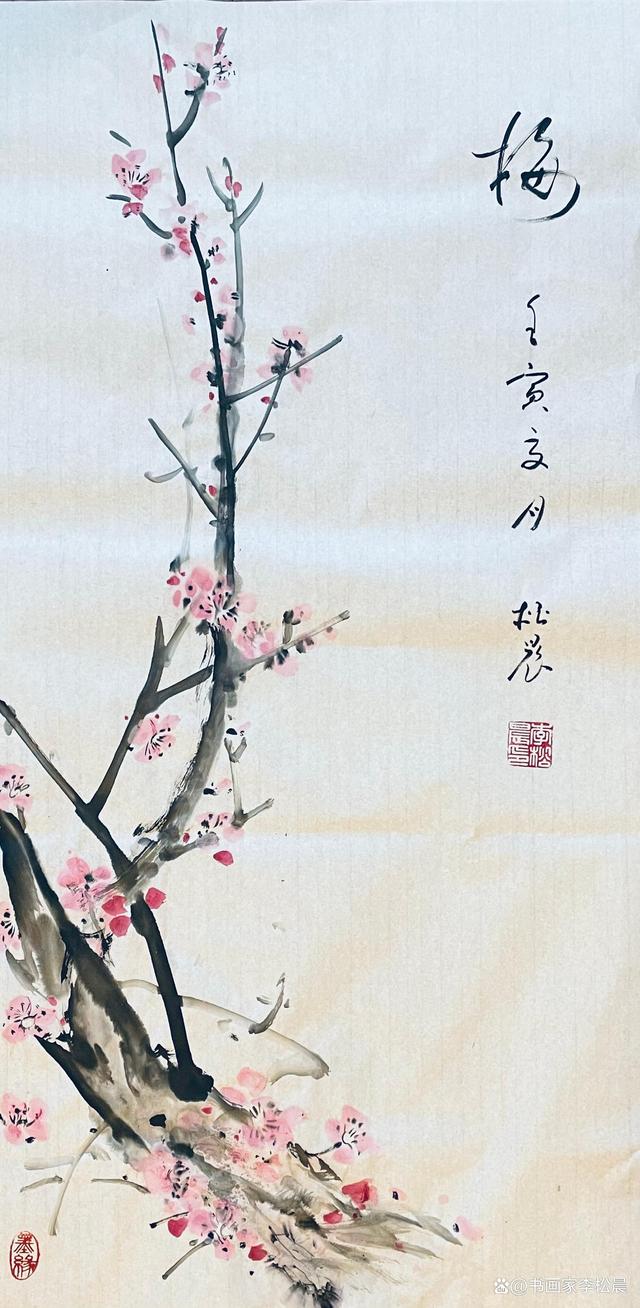 梅 壬寅夏月 松晨
李松晨印
墨缘
@书画家李松晨